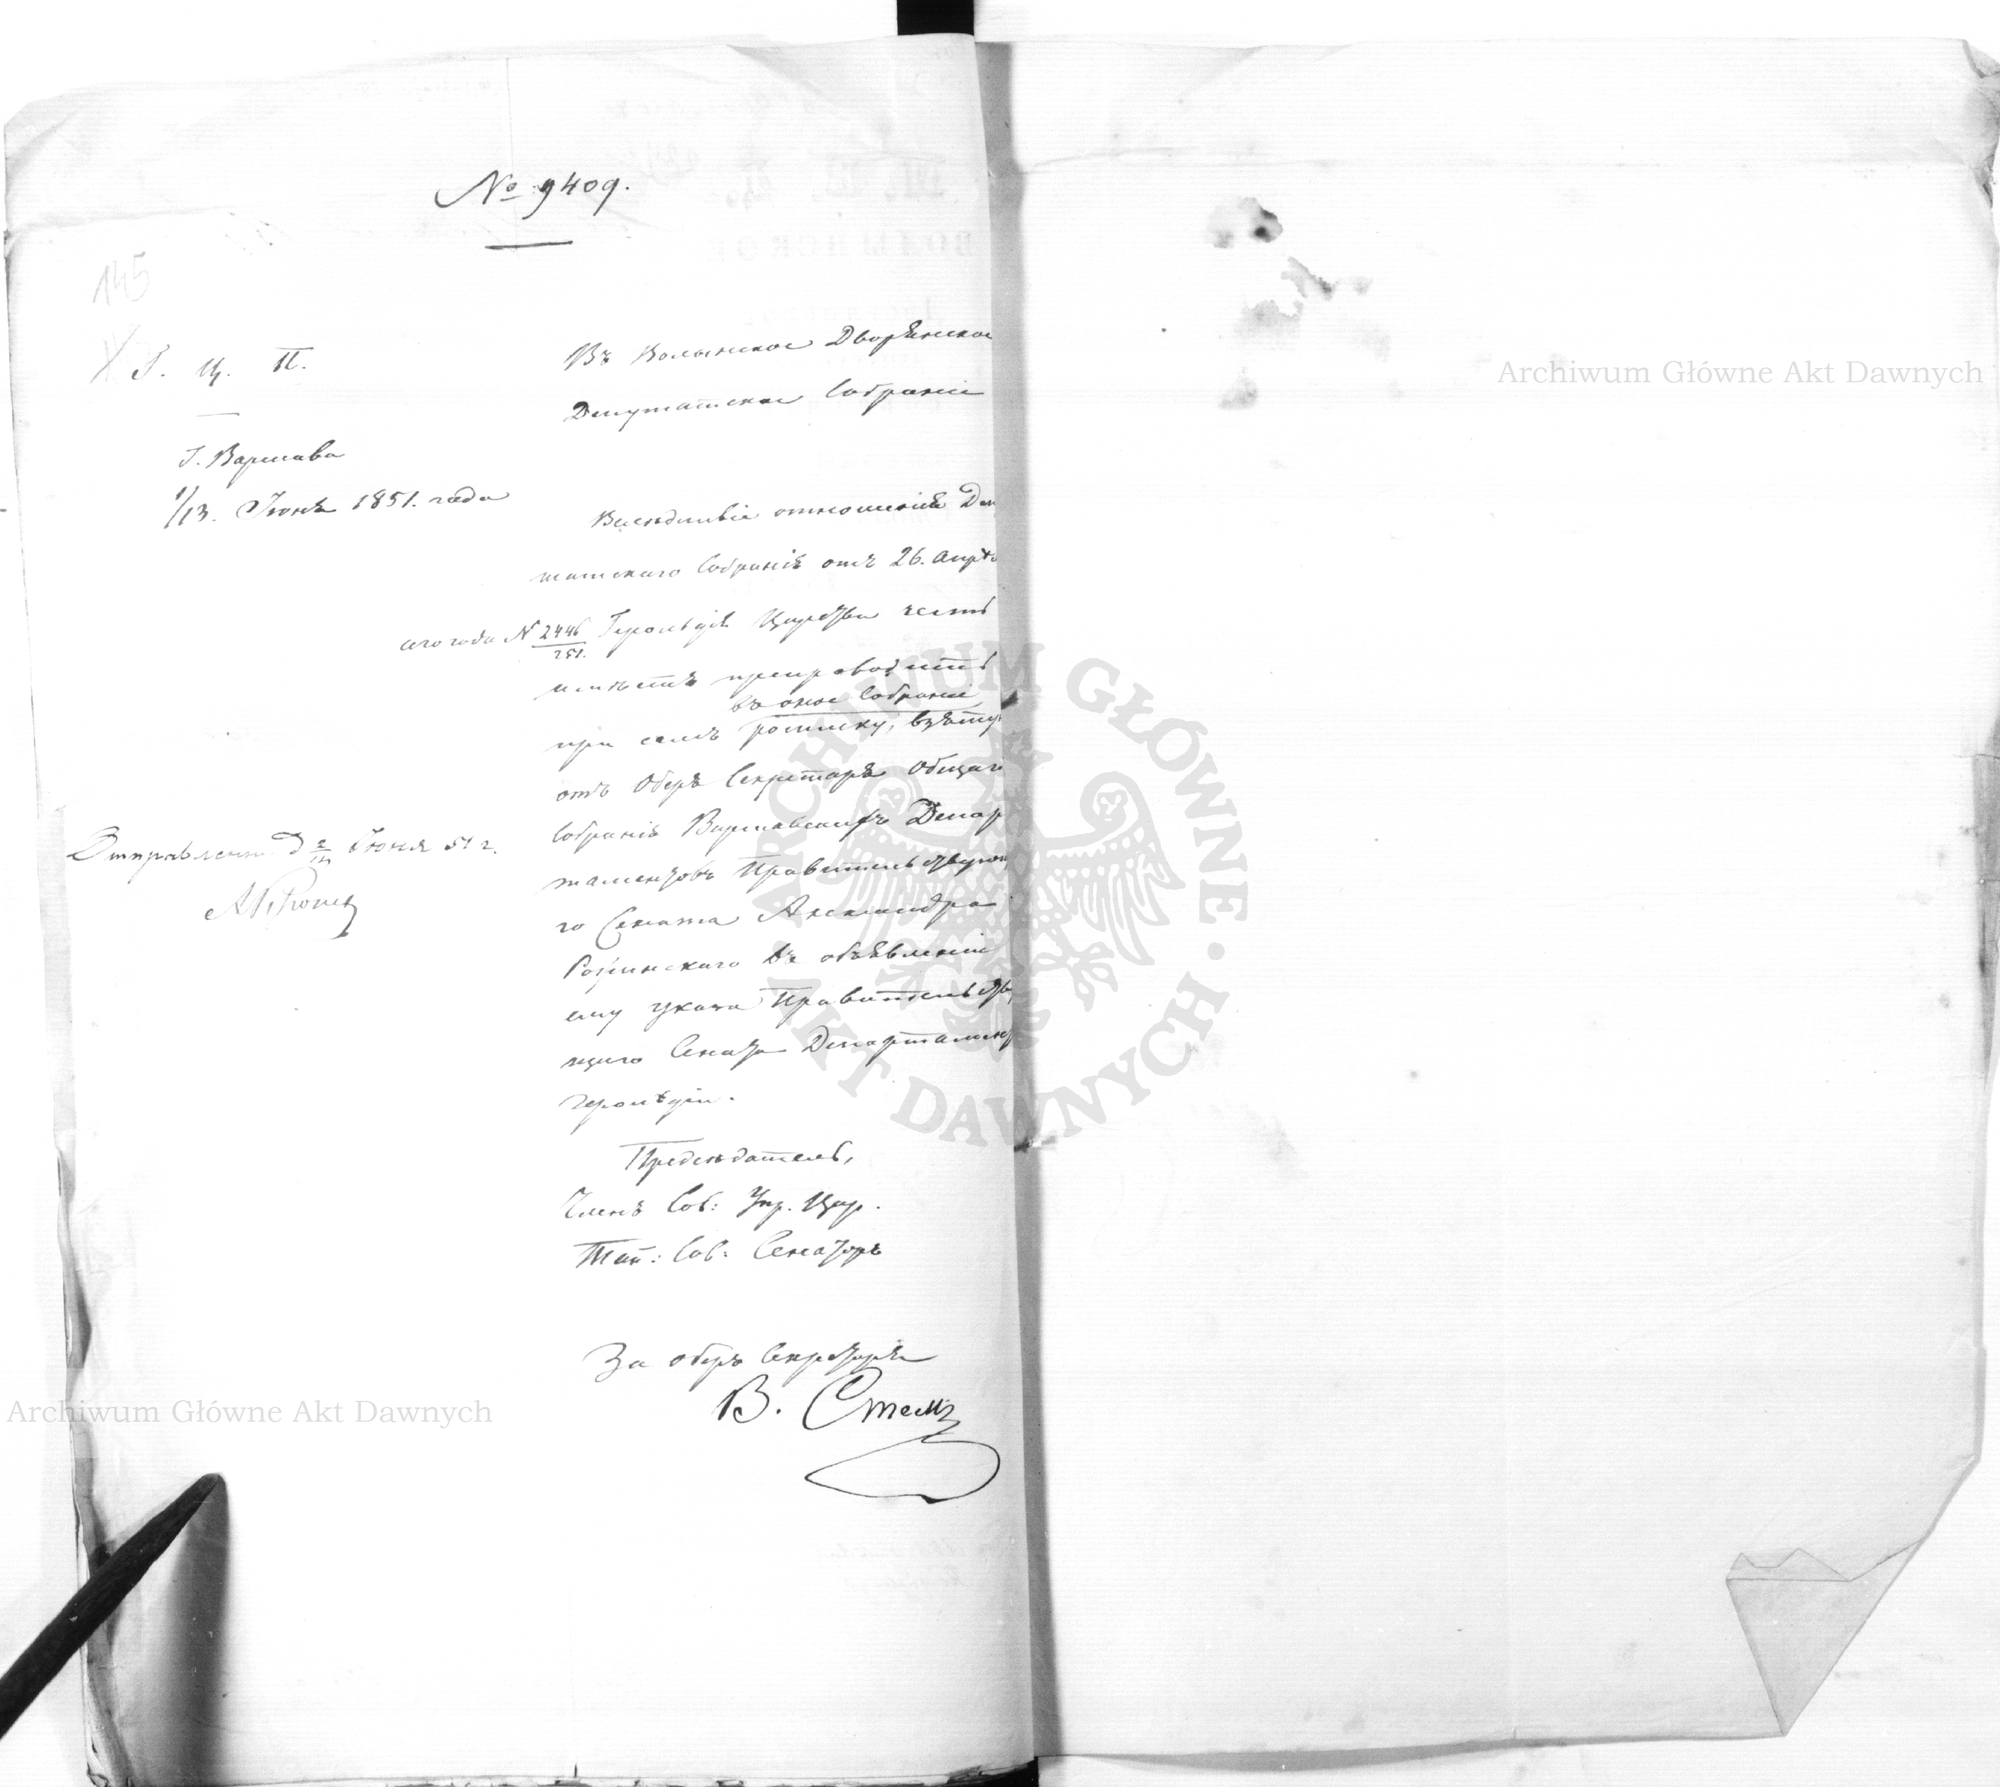 № 9409.
145
Г. Ц. П.
Г. Варшава
1/13. Іюня 1851. года
Въ Волынское Дворянское
Депутатское Собраніе
Вслѣдствіе отношенія Деп
татскаго Собранія отъ 26. Апрѣ
сего года N 2446/251. Герольдія Царства честь
имѣетъ препроводить
въ оное Собраніе
при семъ росписку, взятую
отъ Оберъ Секретаря Общаго
Собранія Варшавскихъ Депар
таментовъ Правительствующ
го Сената Александра
въ объявленіи
ему указа Правительству
щаго Сената Департамента
Герольдіи.
Предсѣдатель,
Членъ Сов: Упр. Цар.
Тай: Сов: Сенаторъ
За Оберъ Секретаря
В.
Отправлено 2/14 Іюня 51 г.
Archiwum Główne Akt Dawnych
Archiwum Główne Akt Dawnych
ARCHIWUM GŁÓWNE · AKT DAWNYCH ·